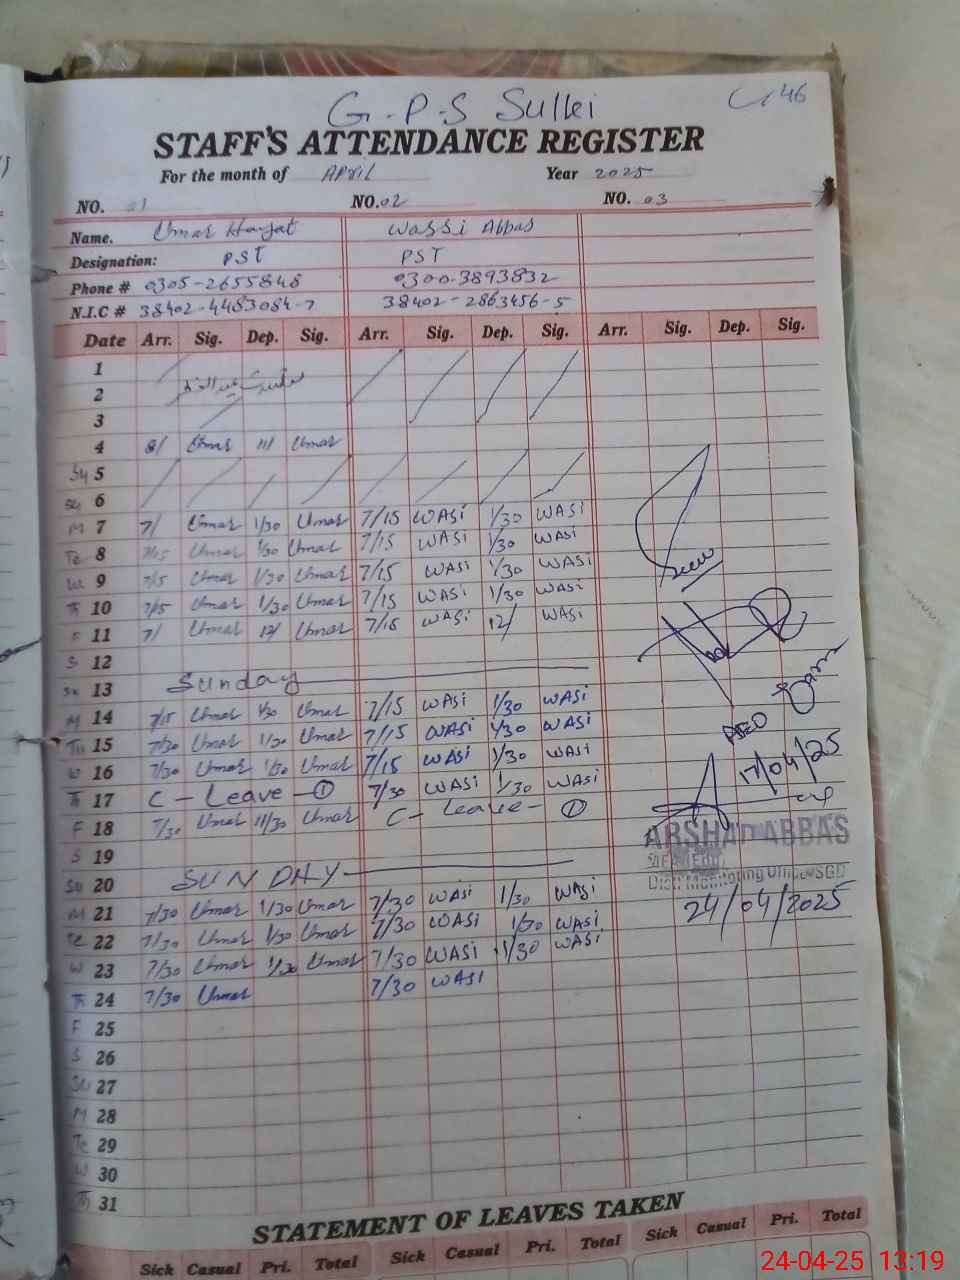 G-P-S Sulki
46
STAFF'S ATTENDANCE REGISTER
For the month of APRIL Year 2025
NO. 01 NO. 02 NO. 03
Name. Umar Hayat Wassi Abbas
Designation: PST PST
Phone # 0305-2655848 0300-3893832
N.I.C # 38402-4483084-7 38402-2863456-5
Date Arr. Sig. Dep. Sig. Arr. Sig. Dep. Sig. Arr. Sig. Dep. Sig.
1
2
3
4 8/ Umar 11/ Umar
5
6
M 7 7/ Umar 1/30 Umar 7/15 WASi 1/30 WASi
Te 8 7/15 Umar 1/30 Umar 7/15 WASi 1/30 WASi
W 9 7/15 Umar 1/30 Umar 7/15 WASi 1/30 WASi
Th 10 7/15 Umar 1/30 Umar 7/15 WASi 1/30 WASi
F 11 7/ Umar 12/ Umar 7/15 WASi 12/ WASi
S 12
Su 13 Sunday
M 14 7/15 Umar 1/30 Umar 7/15 WASi 1/30 WASi
Tu 15 7/30 Umar 1/30 Umar 7/15 WASi 1/30 WASi
W 16 7/30 Umar 1/30 Umar 7/15 WASi 1/30 WASi
Th 17 C - Leave - 1 7/30 WASi 1/30 WASi
F 18 7/30 Umar 11/30 Umar C - Leave - 1
S 19
Su 20 SUNDAY
M 21 7/30 Umar 1/30 Umar 7/30 WASi 1/30 WASi
Te 22 7/30 Umar 1/30 Umar 7/30 WASi 1/30 WASi
W 23 7/30 Umar 1/30 Umar 7/30 WASi 1/30 WASi
Th 24 7/30 Umar 7/30 WASI
F 25
S 26
Su 27
M 28
Te 29
W 30
Th 31
AEO
17/04/25
ARSHAD ABBAS
Distt Monitoring Office SGD
24/04/2025
STATEMENT OF LEAVES TAKEN
Sick Casual Pri. Total Sick Casual Pri. Total Sick Casual Pri. Total
24-04-25 13:19